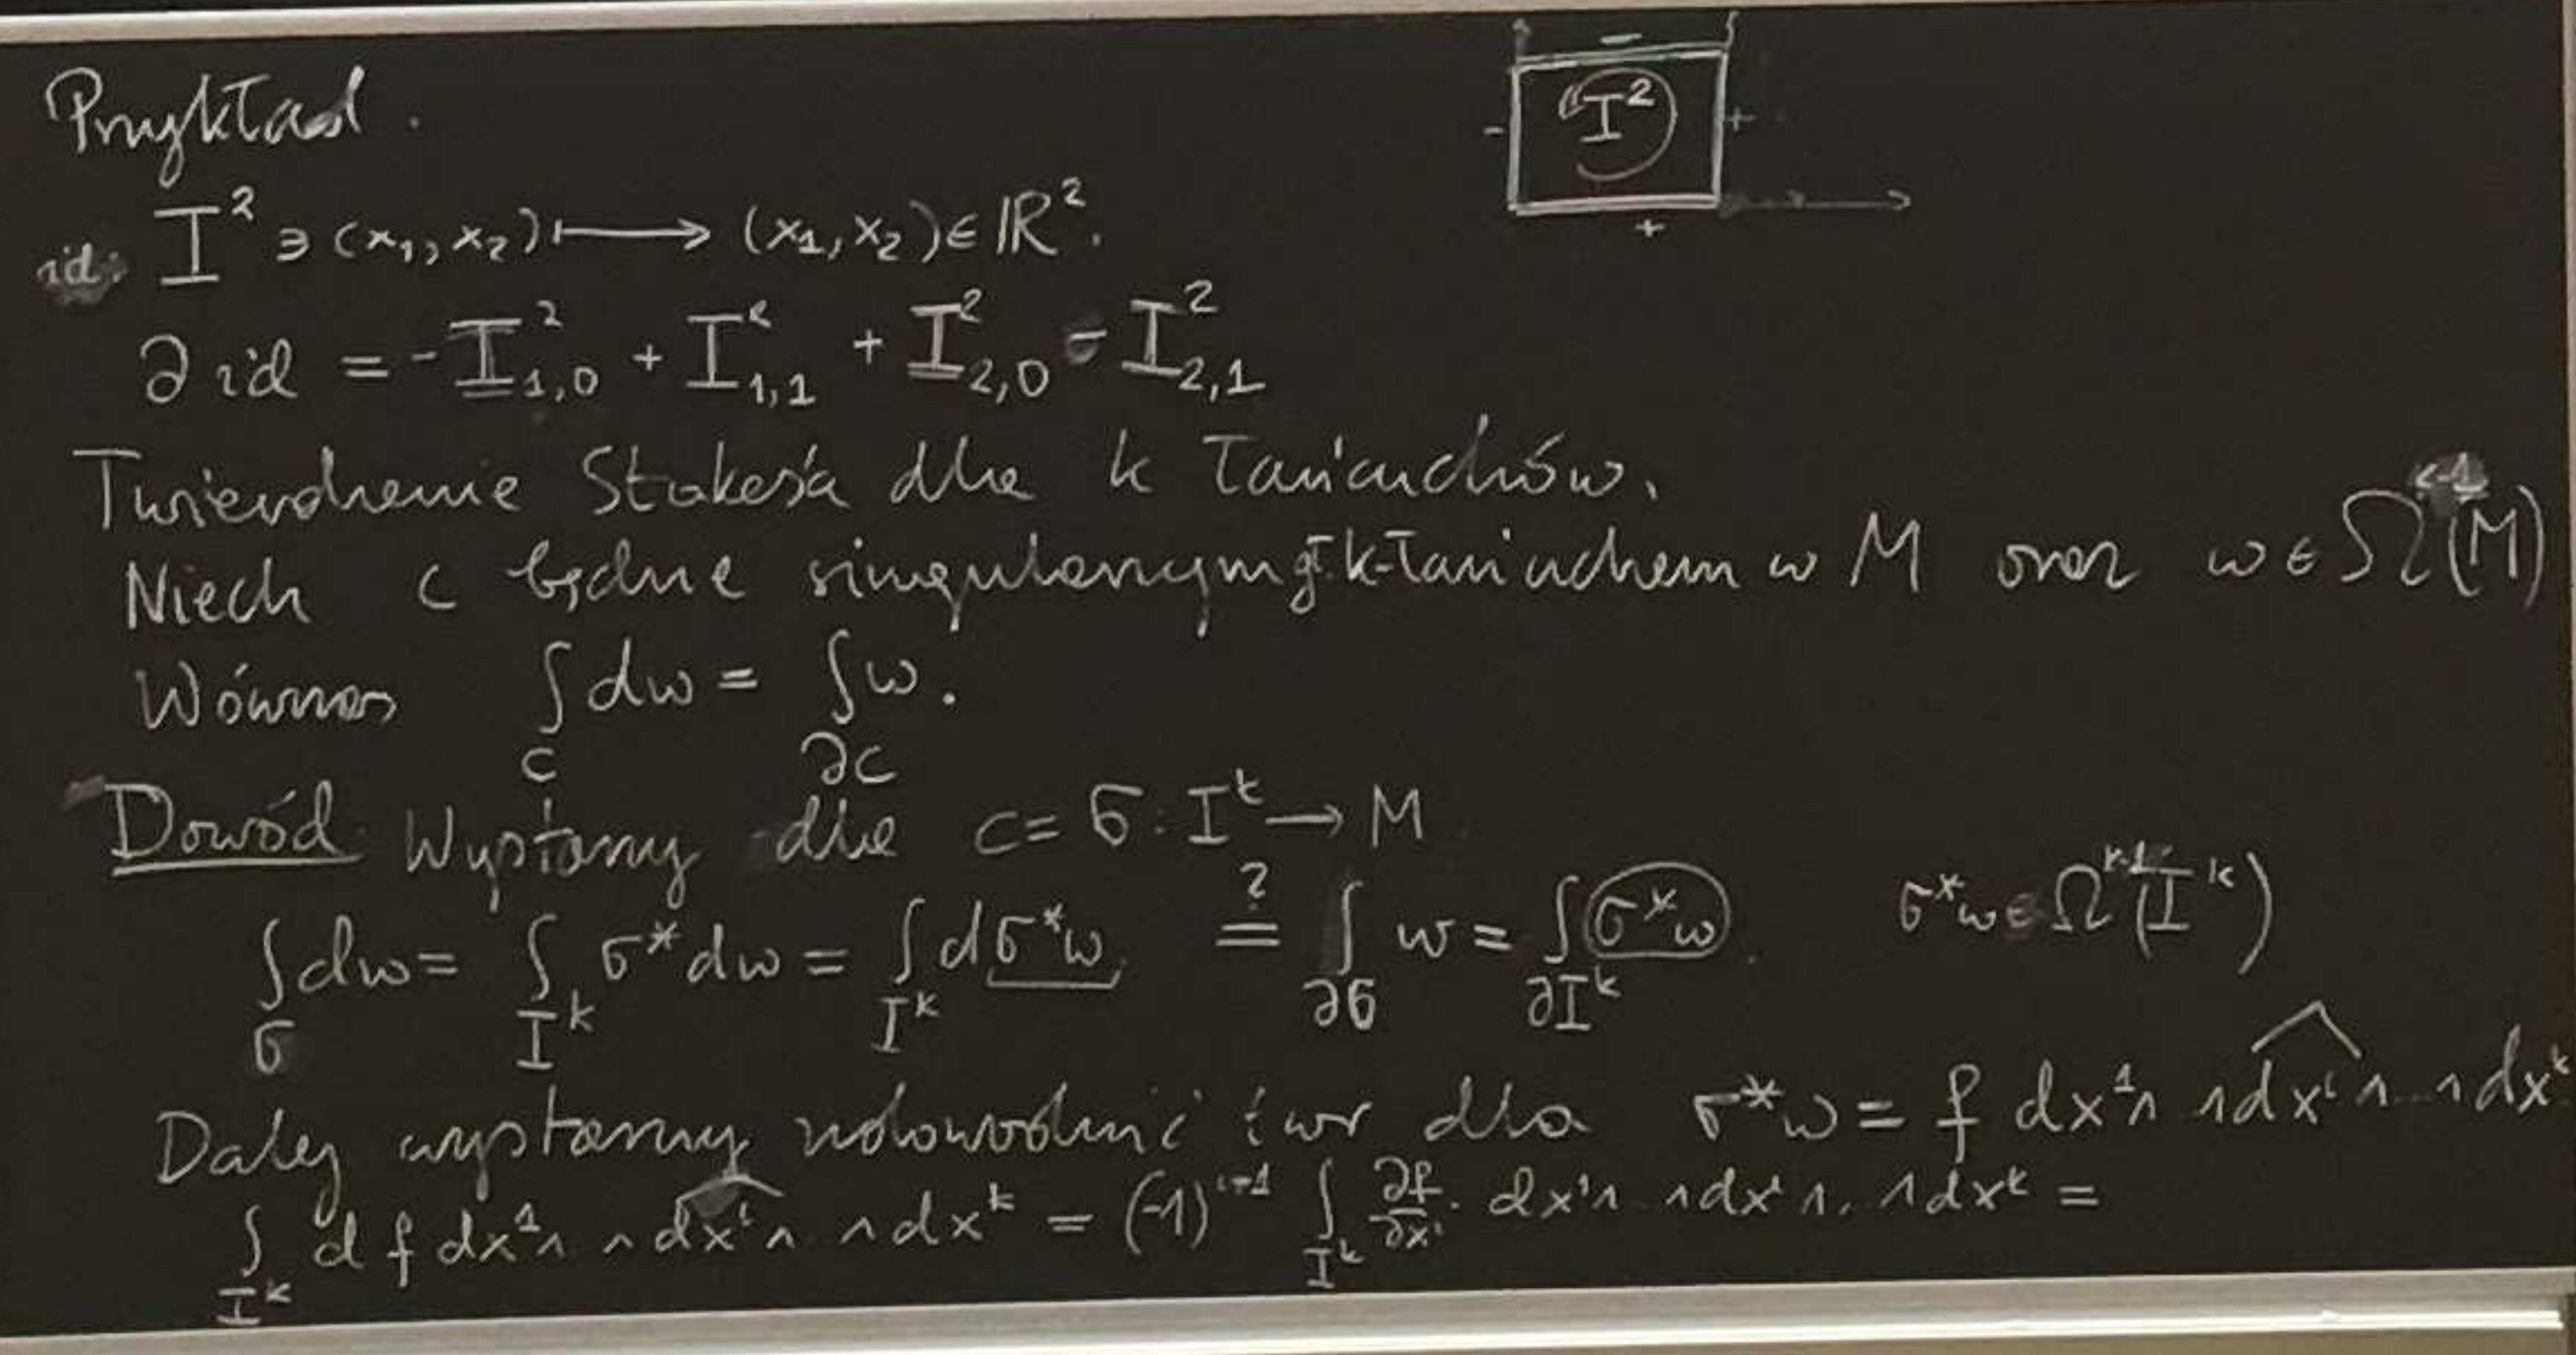 Przykład.
−
I²
−
+
+
id: I² ∋ (x₁, x₂) ⟼ (x₁, x₂) ∈ ℝ².
∂ id = − I²₁,₀ + I²₁,₁ + I²₂,₀ − I²₂,₁
Twierdzenie Stokes'a dla k łańcuchów.
Niech c będzie singularnym gł. k-łańcuchem w M oraz ω ∈ Ωᵏ⁻¹(M)
Wówczas ∫_c dω = ∫_∂c ω.
Dowód. Wystarczy dla c = σ: Iᵏ → M
∫_σ dω = ∫_{Iᵏ} σ* dω = ∫_{Iᵏ} d σ*ω ≟ ∫_∂σ ω = ∫_{∂Iᵏ} σ*ω. σ*ω ∈ Ωᵏ⁻¹(Iᵏ)
Dalej wystarczy udowodnić tw dla σ*ω = f dx¹∧ ∧\widehat{dxⁱ}∧...∧dxᵏ
∫_{Iᵏ} d f dx¹∧ ∧\widehat{dxⁱ}∧ ∧dxᵏ = (-1)ⁱ⁻¹ ∫_{Iᵏ} ∂f/∂xⁱ · dx¹∧ ∧dxⁱ∧. ∧dxᵏ =